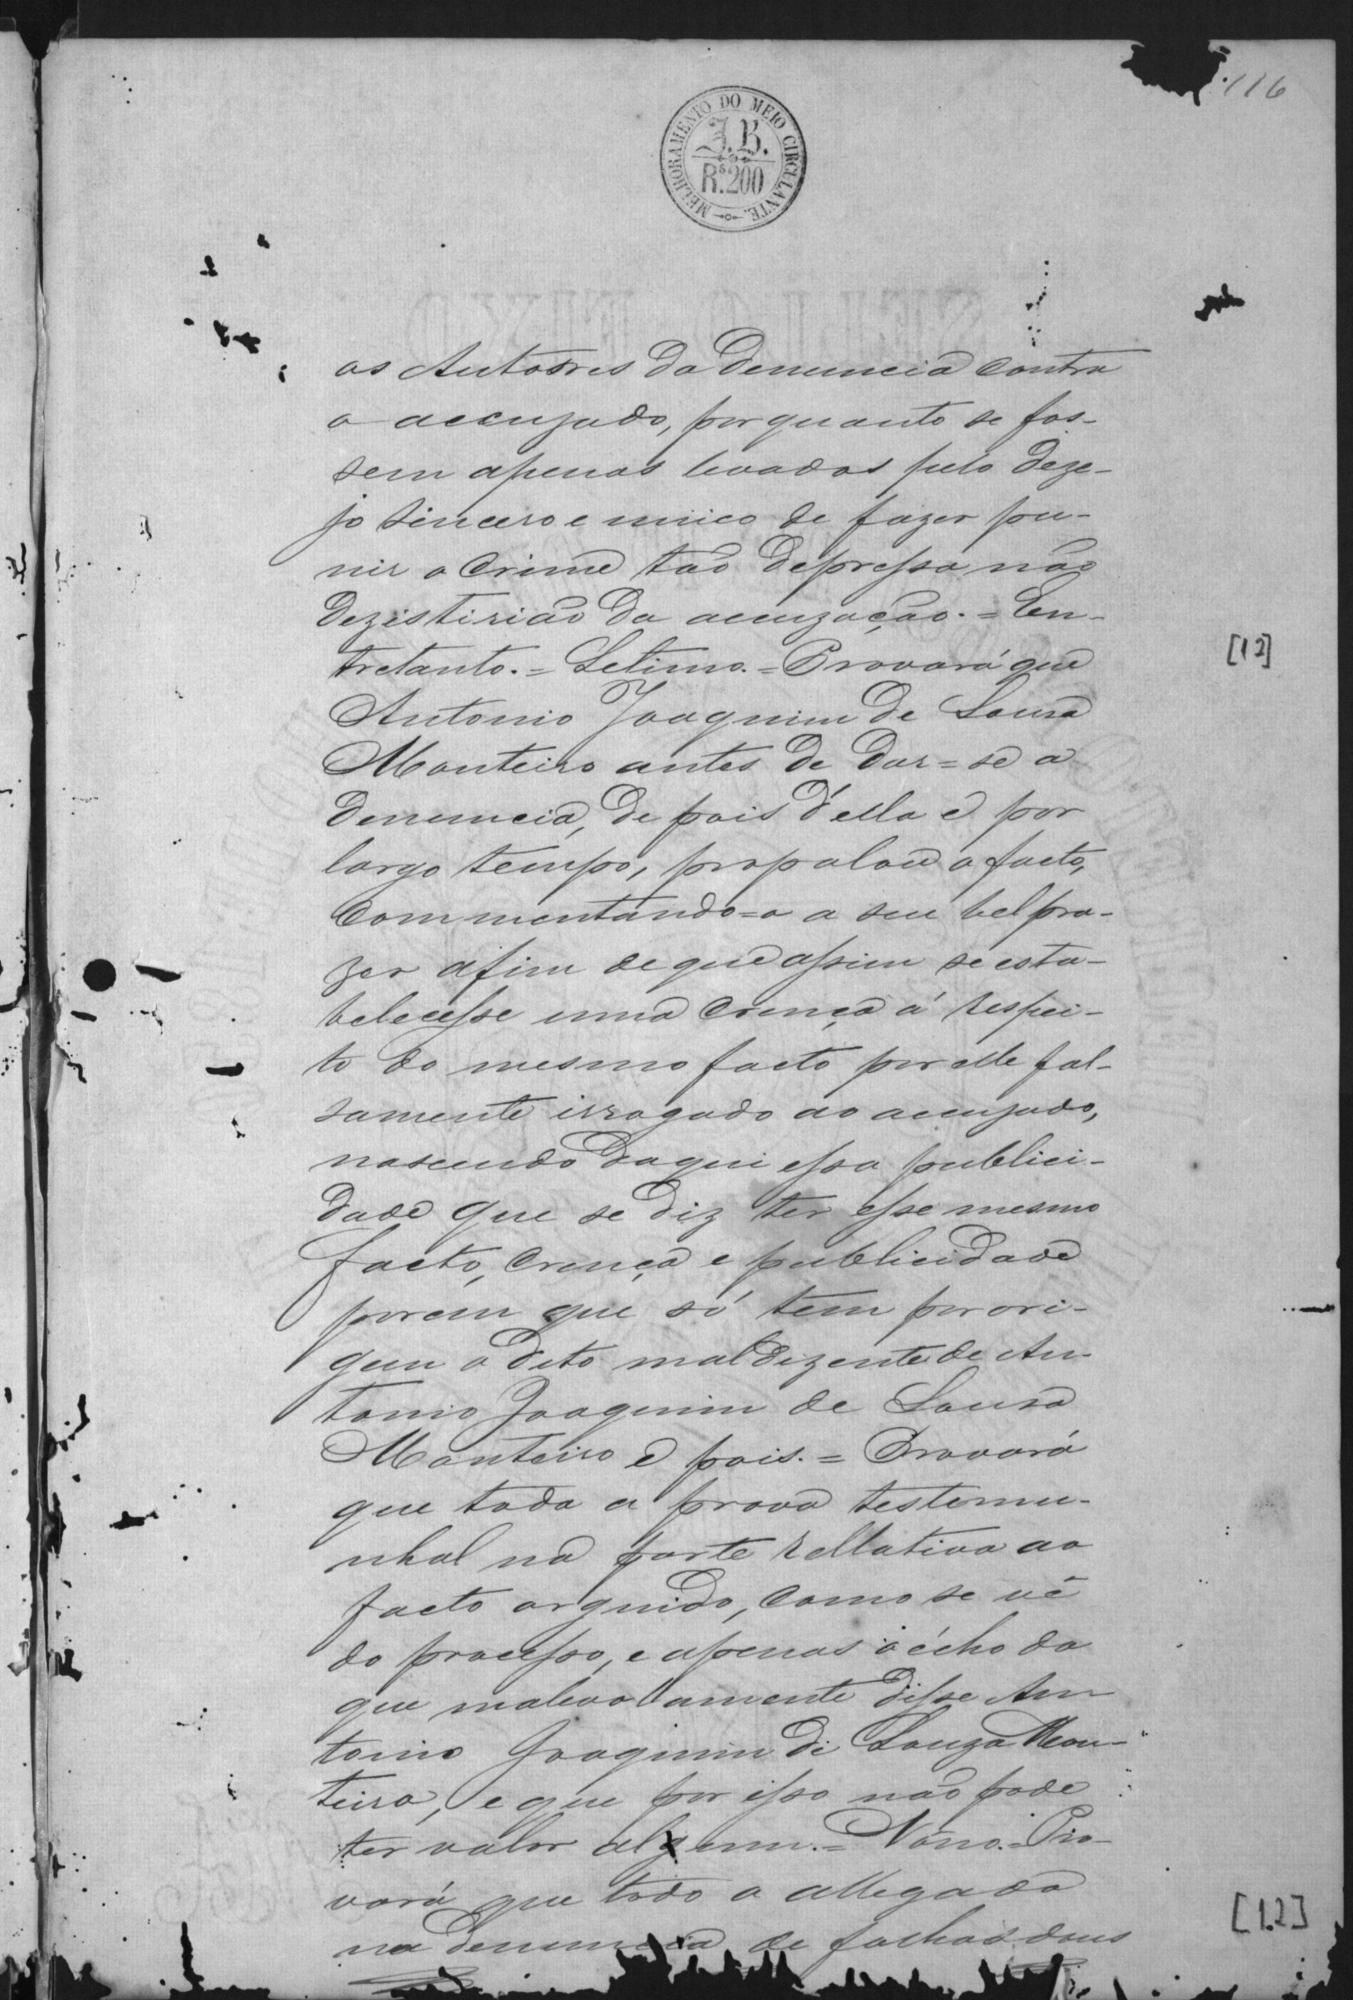 116
MELHORAMENTO DO MEIO CIRCULANTE.
J.B.
Rs.200
os Autores da denuncia contra
o accuzado, porquanto se fos-
sem apenas levados pelo deze-
jo sincero e unico de fazer pu-
nir o crime tão depressa não
dezistirião da accuzação. = En-
tretanto. = Setimo. = Provará que
[12]
Antonio Joaquim de Souza
Monteiro antes de dar=se a
denuncia, de pois d'ella e por
largo tempo, propalou o facto,
commentando=o a seu belpra-
zer afim de que assim se esta-
belecesse uma crença á respei-
to do mesmo facto por elle fal-
samente irrogado ao accuzado,
nascendo daqui essa publici-
dade que se diz ter esse mesmo
facto, crença e publicidade
porem que só tem por ori-
gem o dito maldizente de An-
tonio Joaquim de Souza
Monteiro e pois. = Provará
que toda a prova testemu-
nhal na parte rellativa ao
facto arguido, como se vê
do processo, e apenas o écho do
que malevolamente disse An-
tonio Joaquim de Souza Mon-
teiro, e que por isso não pode
ter valor algum. = Nono. = Pro-
vará que todo o allegado
na denuncia de folhas dous
[12]